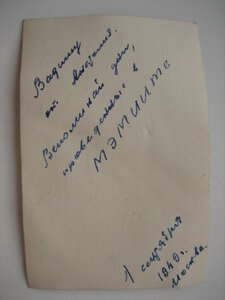 Вадиму
от Андрея.
Вспоминай дни,
проведенные в
МЭМИИТе
1 сентября
1949 г.
Москва.